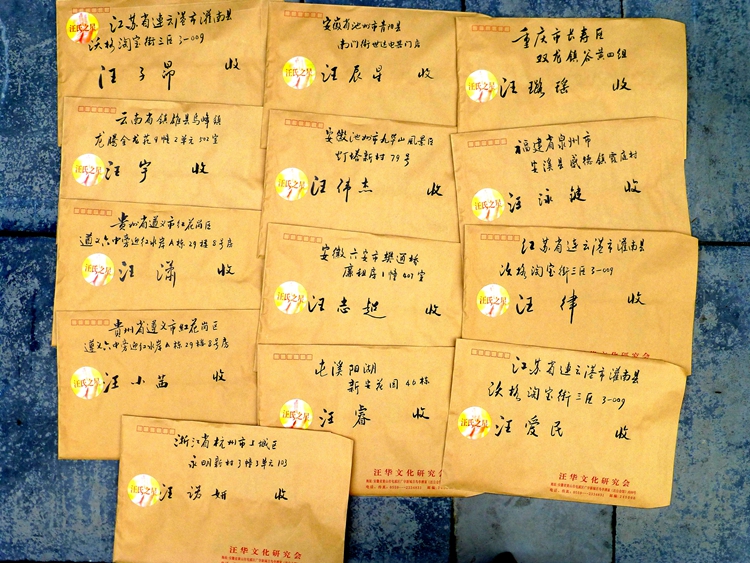 汪氏之星
江苏省连云港市灌南县
沃格淘宝街三区3-009
汪子昂 收
云南省镇雄县乌峰镇
龙腾金龙花9幢2单元502室
汪宇 收
贵州省遵义市红花岗区
遵义六中旁迎红水岸A栋29楼8号房
汪氏之星
汪潇 收
贵州省遵义市红花岗区
遵义六中旁迎红水岸A栋29楼8号房
汪氏之星
汪小茜 收
浙江省杭州市上城区
永明新村3幢3单元103
汪氏之星
汪诺妍 收
汪华文化研究会
安徽省池州市青阳县
南门街世达电器门店
汪氏之星
汪辰星 收
安徽池州市九华山风景区
灯塔新村79号
汪氏之星
汪伟杰 收
安徽六安市樊通桥
廉租房1幢407室
汪氏之星
汪志超 收
屯溪阳湖
新安花园46栋
汪氏之星
汪睿 收
汪华文化研究会
重庆市长寿区
双龙镇谷黄四组
汪氏之星
汪璐瑶 收
福建省泉州市
安溪县感德镇霞庭村
汪氏之星
汪泳键 收
江苏省连云港市灌南县
沃格淘宝街三区3-009
汪氏之星
汪律 收
江苏省连云港市灌南县
沃格淘宝街三区3-009
汪氏之星
汪爱民 收
汪华文化研究会